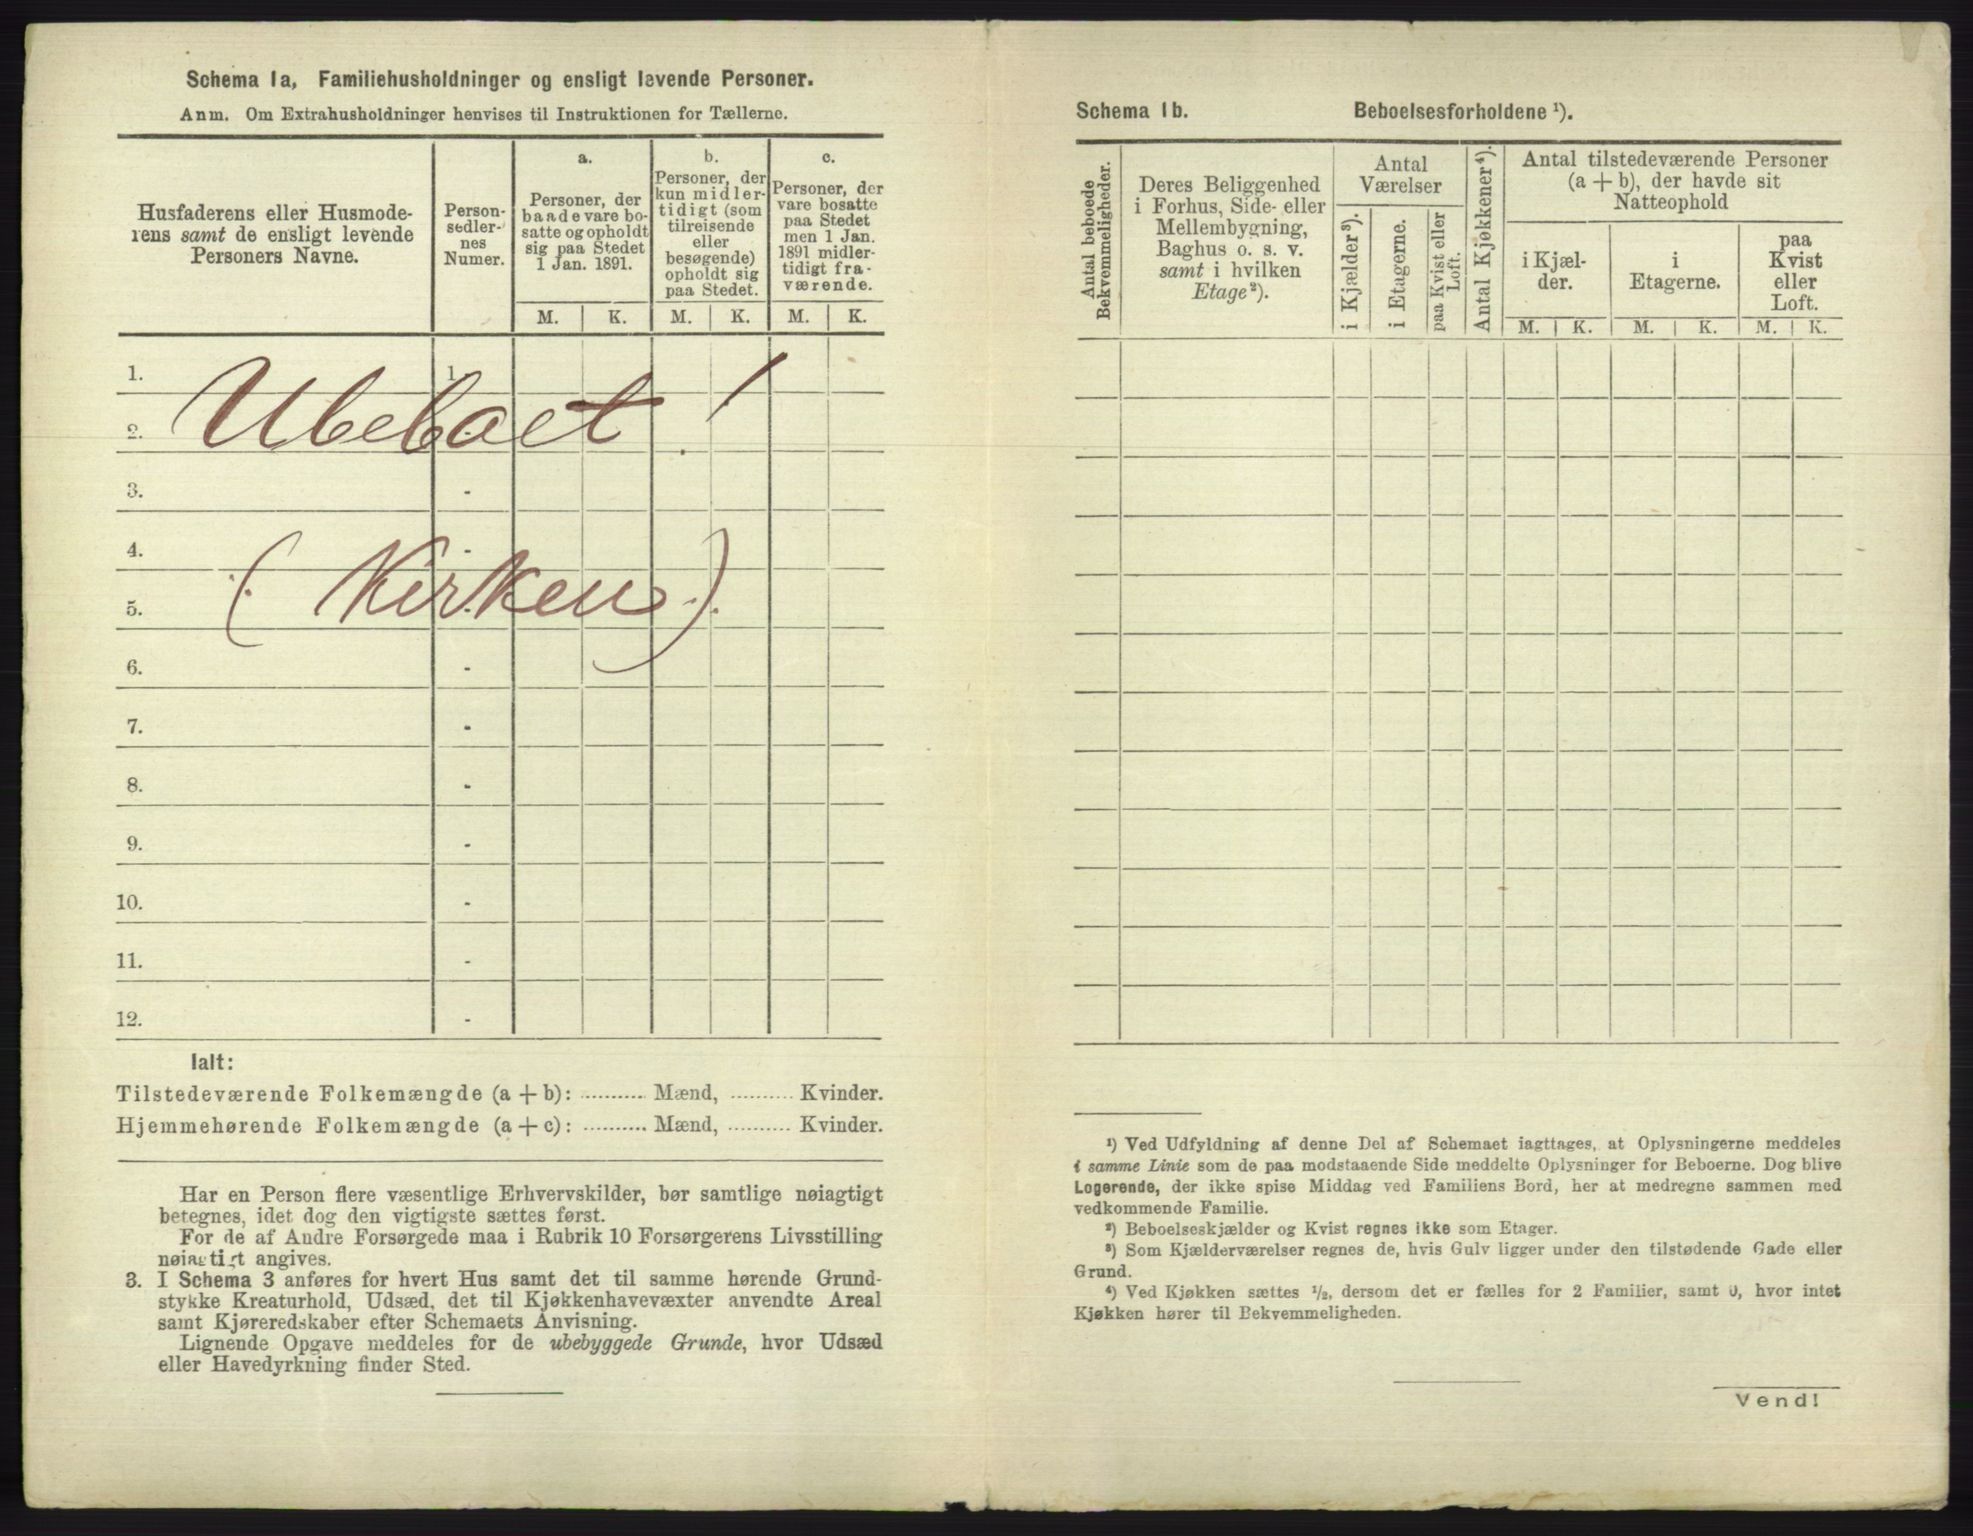 Schema 1a, Familiehusholdninger og ensligt levende Personer.
Anm. Om Extrahusholdninger henvises til Instruktionen for Tællerne.
Husfaderens eller Husmode-
rens samt de ensligt levende
Personers Navne.
Person-
sedler-
nes
Numer.
a.
Personer, der
baade vare bo-
satte og opholdt
sig paa Stedet
1 Jan. 1891.
b.
Personer, der
kun midler-
tidigt (som
tilreisende
eller
besøgende)
opholdt sig
paa Stedet.
c.
Personer, der
vare bosatte
paa Stedet
men 1 Jan.
1891 midler-
tidigt fra-
værende.
M. K. M. K. M. K.
1. 1.
2. Ubeboet!
3. -
4. -
5. (Kirken).
6. -
7. -
8. -
9. -
10. -
11. -
12. -
Ialt:
Tilstedeværende Folkemængde (a + b): .......... Mænd, .......... Kvinder.
Hjemmehørende Folkemængde (a + c): .......... Mænd, .......... Kvinder.
Har en Person flere væsentlige Erhvervskilder, bør samtlige nøiagtigt
betegnes, idet dog den vigtigste sættes først.
For de af Andre Forsørgede maa i Rubrik 10 Forsørgerens Livsstilling
nøiagtigt angives.
3. I Schema 3 anføres for hvert Hus samt det til samme hørende Grund-
stykke Kreaturhold, Udsæd, det til Kjøkkenhavevæxter anvendte Areal
samt Kjøreredskaber efter Schemaets Anvisning.
Lignende Opgave meddeles for de ubebyggede Grunde, hvor Udsæd
eller Havedyrkning finder Sted.
Schema 1b. Beboelsesforholdene ¹).
Antal beboede
Bekvemmeligheder.
Deres Beliggenhed
i Forhus, Side- eller
Mellembygning,
Baghus o. s. v.
samt i hvilken
Etage²).
Antal
Værelser
i Kjælder³).
i Etagerne.
paa Kvist eller
Loft.
Antal Kjøkkener⁴).
Antal tilstedeværende Personer
(a + b), der havde sit
Natteophold
i Kjæl-
der.
i
Etagerne.
paa
Kvist
eller
Loft.
M. K. M. K. M. K.
¹) Ved Udfyldning af denne Del af Schemaet iagttages, at Oplysningerne meddeles
i samme Linie som de paa modstaaende Side meddelte Oplysninger for Beboerne. Dog blive
Logerende, der ikke spise Middag ved Familiens Bord, her at medregne sammen med
vedkommende Familie.
²) Beboelseskjælder og Kvist regnes ikke som Etager.
³) Som Kjælderværelser regnes de, hvis Gulv ligger under den tilstødende Gade eller
Grund.
⁴) Ved Kjøkken sættes ½, dersom det er fælles for 2 Familier, samt 0, hvor intet
Kjøkken hører til Bekvemmeligheden.
Vend!